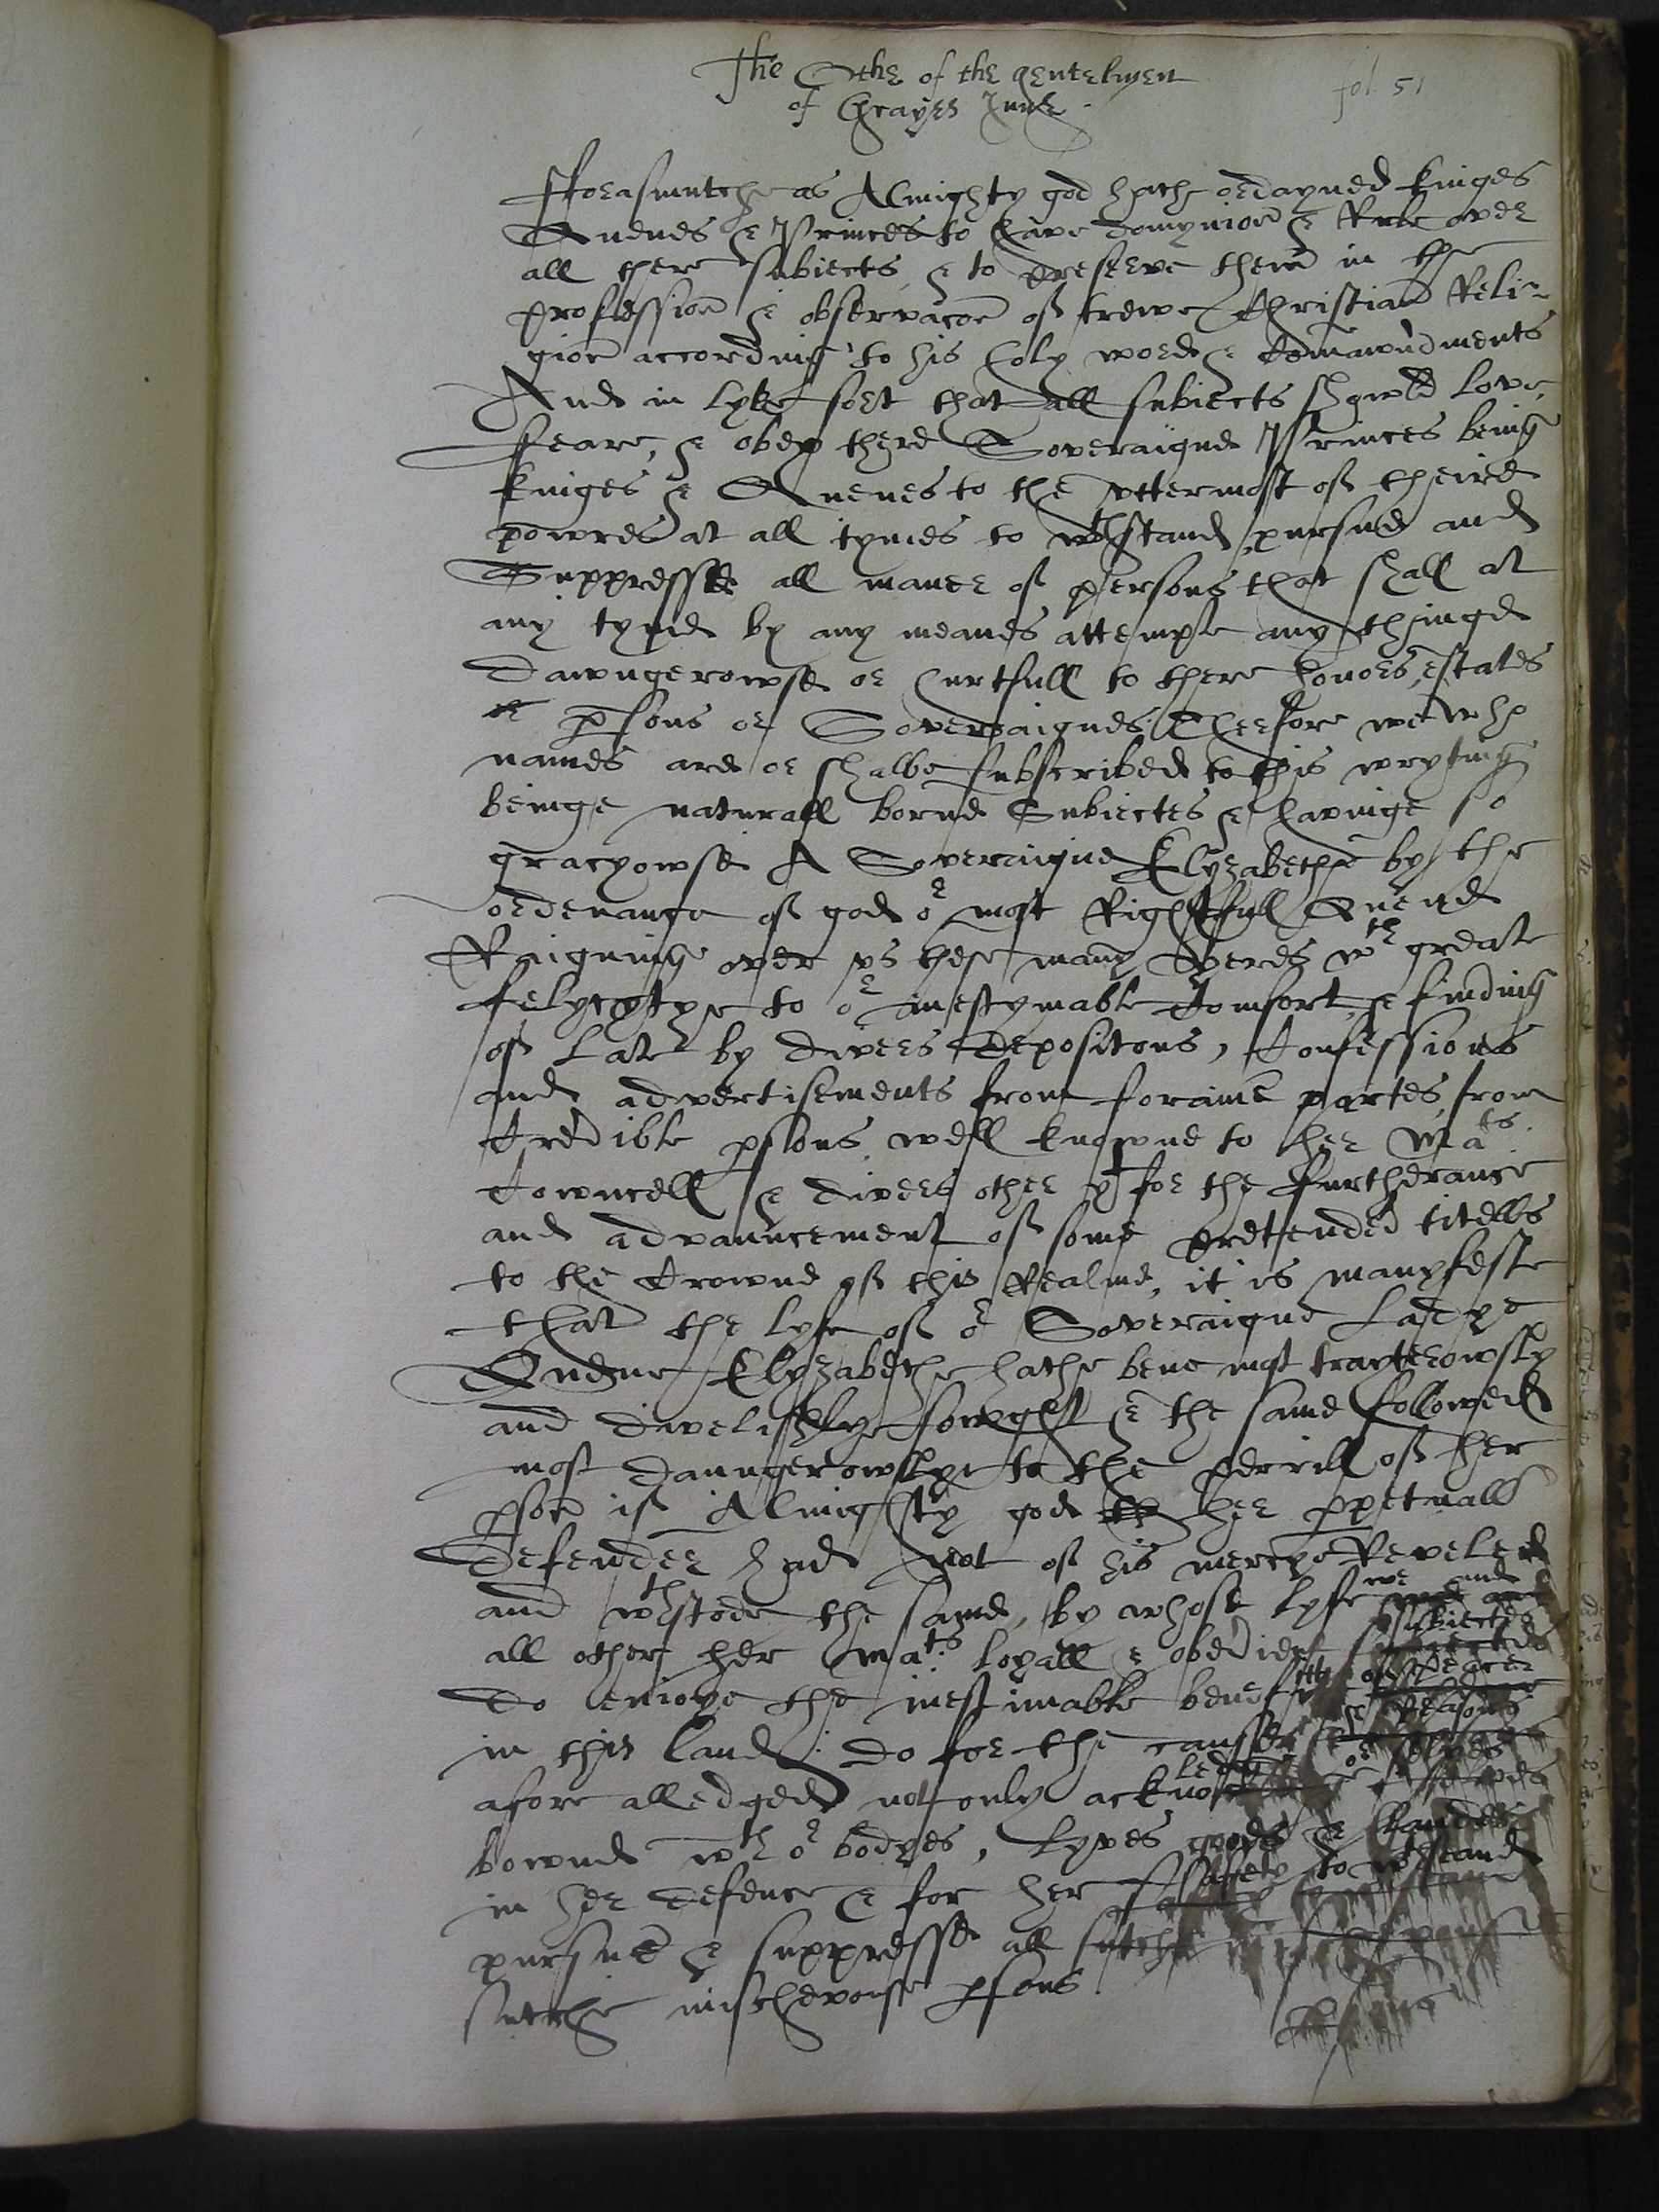 The Othe of the gentelmen
of Grayes Inne.
fol. 51
Fforasmutche as Almighty god hathe ordayned kinges
Quenes & Princes to have domynion & Rule over
all there subiects & to preserve them in the
profession & observacon of trewe Christian Reli-
gion according to his holy word & Comawndments
And in lyke sort that all subiects showld love,
feare, & obey there Soveraigne Princes being
kinges & Quenes to the vttermost of theire
powres at all tymes to wthstand pursue and
Suppresse all maner of persons that shall at
any tyme by any meanes attempte any thinge
Dawngerowse or hurtfull to there honors, estates
or psons or Soveraignes. Therfore we whos
names are or shalbe subscribed to this wryting
beinge naturall borne Subiectes & havinge so
gracyowse A Soveraigne Elyzabethe by the
ordenance of god or most Rightfull Quene
Raigning over vs these many Yeres wth greate
felycytye to or inestymable Comfort, & finding
of late by divers depositons, Confessions
and advertisements from foraine partes from
Credible psons well knowne to her Mats.
Cowncell & divers other yt for the furtherance
and advauncement of some pretended titells
to the Crowne of this Realme, it is manyfeste
that the lyfe of or Soveraigne Ladye
Quene Elyzabethe hathe bene most trayterowsly
and divelishlye sowght & the same followed
most daungerowslye to the perrill of her
pson if Almighty god her ppetuall
defender had not of his mercye Reveled
and wthstode the same, by whose lyfe we and
all other her Mats. loyall & obedient subiectes
do enioye the inestimable of Peace
in this land: do for the causes & Reasons
afore alledged not only acknowledg or selves
bownd wth or bodyes, lyves goods & landes
in her defence & for her saffety to wthstand
pursue & suppresse all sutche
sutche mischevouse psons